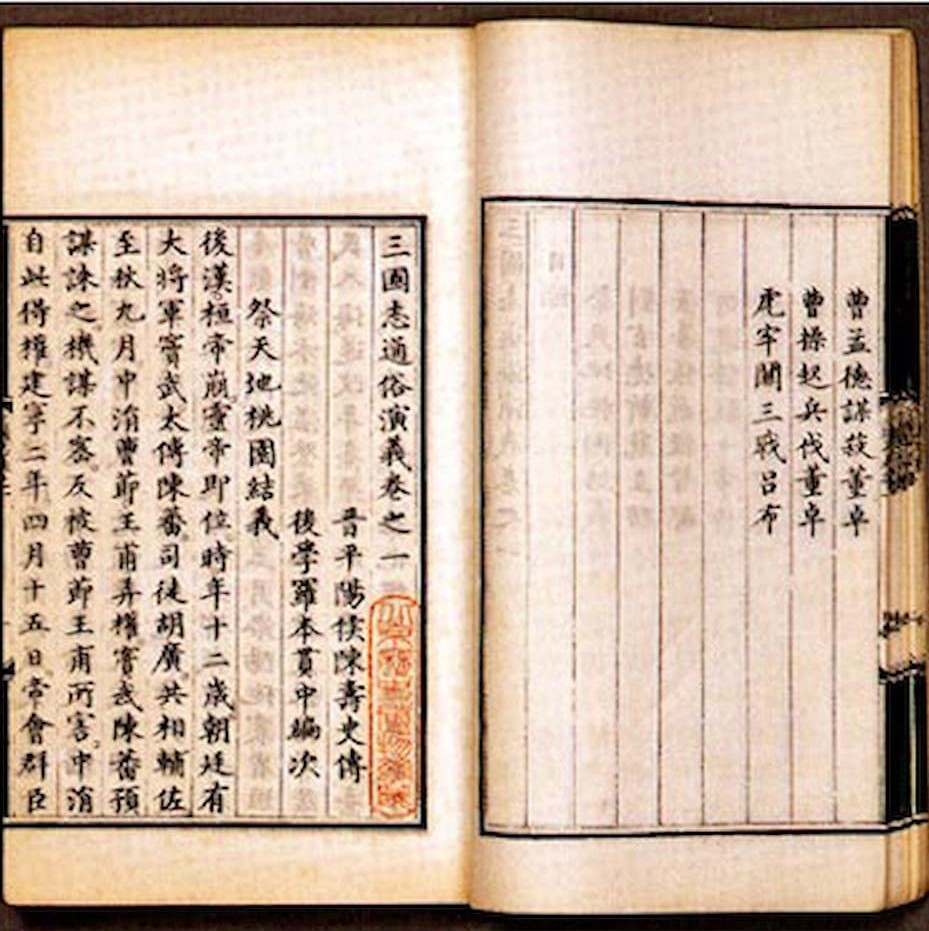 曹孟德謀殺董卓
曹操起兵伐董卓
虎牢關三戰呂布
三國志通俗演義卷之一
晉平陽侯陳壽史傳
後學羅本貫中編次
祭天地桃園結義
後漢桓帝崩靈帝即位時年十二歲朝廷有
大將軍竇武太傅陳蕃司徒胡廣共相輔佐
至秋九月中涓曹節王甫弄權竇武陳蕃預
謀誅之機謀不密反被曹節王甫所害中涓
自此得權建寧二年四月十五日帝會群臣